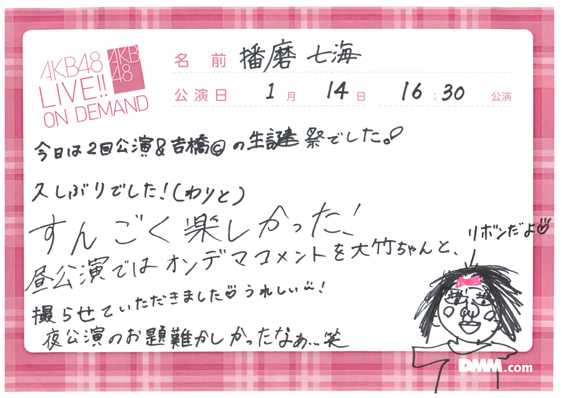 AKB48
LIVE!!
ON DEMAND
AKB
48
名前 播磨 七海
公演日 1月 14日 16:30 公演
今日は2回公演&吉橋©の生誕祭でした。
久しぶりでした!(わりと)
すんごく楽しかった!
昼公演ではオンデマコメントを大竹ちゃんと、
リボンだよ
撮らせていただきました うれしい!
夜公演のお題難かしかったなぁ...笑
DMM.com